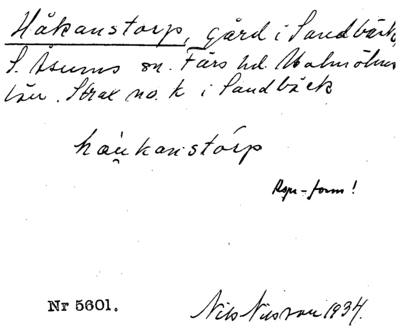 Håkanstorp, gård i Sandbäck,
S. Åsums sn. Färs hd. Malmöhus
län. Strax no. k i Sandbäck
håukanstórp
Rspr-form!
Nr 5601. Nils Nilsson 1934.